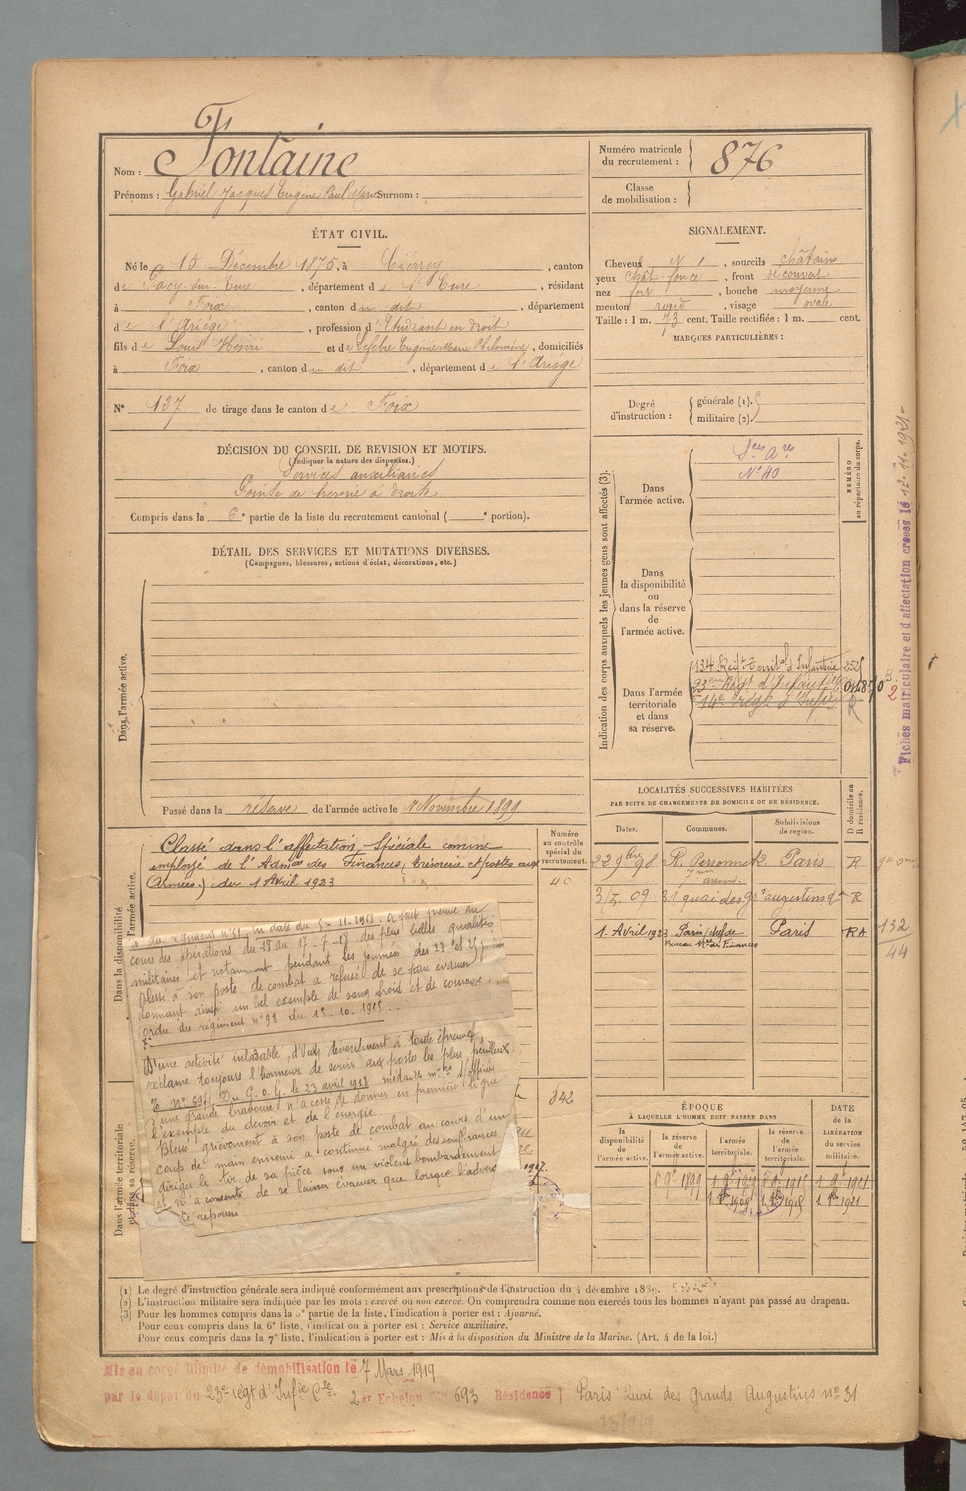 Nom : Fontaine
Prénoms : Gabriel Jacques Eugène Paul Marie Surnom :
Numéro matricule du recrutement : 876
Classe de mobilisation :
ÉTAT CIVIL.
Né le 15 Décembre 1875, à Cierrey, canton
de Pacy-sur-Eure, département de l'Eure, résidant
à Foix, canton du dit, département
de l'Ariège, profession d'Etudiant en droit
fils de Louis Henri et de Lefebre Eugénie Marie Philomène, domiciliés
à Foix, canton du dit, département de l'Ariège
N° 137 de tirage dans le canton de Foix
SIGNALEMENT.
Cheveux , sourcils châtains
yeux chât. foncé, front découvert
nez fort, bouche moyenne
menton rond, visage ovale
Taille : 1 m. 73 cent. Taille rectifiée : 1 m. cent.
MARQUES PARTICULIÈRES :
Degré d'instruction : générale (1).
militaire (2).
DÉCISION DU CONSEIL DE REVISION ET MOTIFS.
(Indiquer la nature des dispenses.)
Services auxiliaires
Pointe de hernie à droite
Compris dans la 6e partie de la liste du recrutement cantonal ( e portion).
DÉTAIL DES SERVICES ET MUTATIONS DIVERSES.
(Campagnes, blessures, actions d'éclat, décorations, etc.)
Dans l'armée active.
Passé dans la réserve de l'armée active le 1 Novembre 1899
Indication des corps auxquels les jeunes gens sont affectés (3).
NUMÉRO au répertoire du corps.
Dans l'armée active.
Ses Ares
N° 40
Dans la disponibilité ou dans la réserve de l'armée active.
Dans l'armée territoriale et dans sa réserve.
134 Regt Territal d'Infanterie
23eme Regt d'Infanterie
14e régt d'Infie
R
Fiches matriculaire et d'affectation créées le 12-11-1921-
Dans la disponibilité
l'armée active.
Classé dans l'affectation Spéciale comme
employé de l'Admon des Finances (Trésorerie et postes aux
Armées.) du 1 Avril 1923
Numéro au contrôle spécial du recrutement.
40
342
du régiment n° 51 en date du 5-11-1918. A fait preuve au
cours des opérations du 18 au 17-7-18 des plus belles qualités
militaires et notamment pendant les journées des 23 et 25
Blessé à son poste de combat a refusé de se faire évacuer
donnant ainsi un bel exemple de sang froid et de courage.
ordre du régiment n° 98 du 15-10-1915
D'une activité inlassable, d'un dévouement à toute épreuve,
réclame toujours l'honneur de servir aux postes les plus périlleux
Du G.Q.G. le 23 avril 1918 médaille mre S/officier
d'une grande bravoure, n'a cessé de donner en première ligne
l'exemple du devoir et de l'énergie.
Blessé grièvement à son poste de combat au cours d'un
coup de main ennemi a continué malgré des souffrances
dirigé le tir de sa pièce sous un violent bombardement
et n'a consenti de se laisser évacuer que lorsque l'adversaire
été repoussé
Dans l'armée territoriale
et dans sa réserve.
LOCALITÉS SUCCESSIVES HABITÉES
PAR SUITE DE CHANGEMENTS DE DOMICILE OU DE RÉSIDENCE.
D domicile ou R résidence.
Dates. Communes. Subdivisions de région.
22 9bre 98 R. Perronnet 2 Paris R
3/5 09 31 quai des Gds augustins R
1. Avril 1923 Paris chef de Bureau Mre des Finances Paris RA
132
44
ÉPOQUE
À LAQUELLE L'HOMME DOIT PASSER DANS
la disponibilité de l'armée active.
la réserve de l'armée active.
l'armée territoriale.
la réserve de l'armée territoriale.
DATE de la LIBÉRATION du service militaire.
(1) Le degré d'instruction générale sera indiqué conformément aux prescriptions de l'instruction du 4 décembre 1889.
(2) L'instruction militaire sera indiquée par les mots : exercé ou non exercé. On comprendra comme non exercés tous les hommes n'ayant pas passé au drapeau.
(3) Pour les hommes compris dans la 5e partie de la liste, l'indication à porter est : Ajourné.
Pour ceux compris dans la 6e liste, l'indication à porter est : Service auxiliaire.
Pour ceux compris dans la 7e liste, l'indication à porter est : Mis à la disposition du Ministre de la Marine. (Art. 4 de la loi.)
Mis en congé illimité de démobilisation le 7 Mars 1919
par le dépôt du 23e régt d'Infie Cie 2er Echelon 693 Résidence Paris Quai des Grands Augustins n° 31